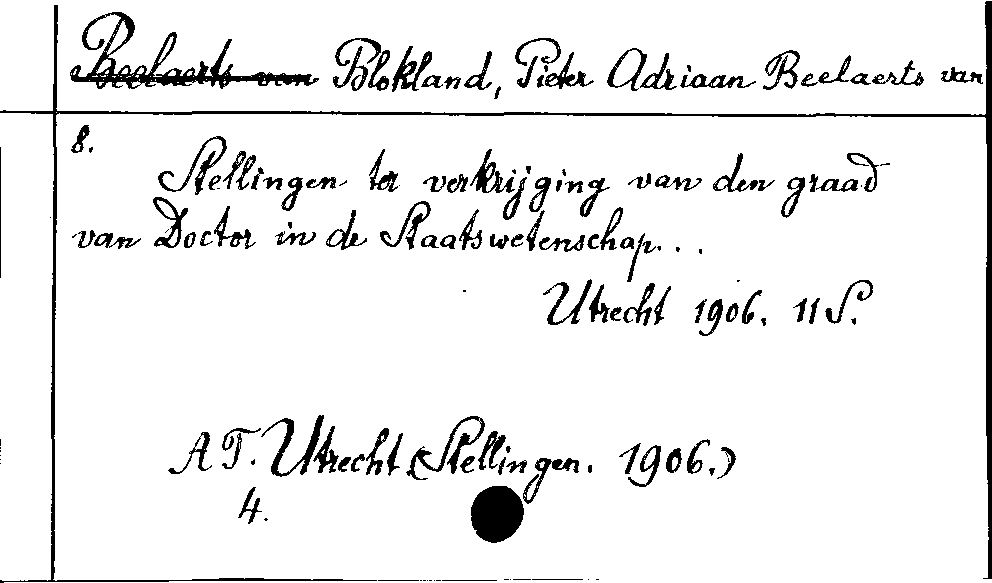 Beelaerts van Blokland, Pieter Adriaan Beelaerts van
8.
Stellingen ter verkrijging van den graad
van Doctor in de Staatswetenschap...
Utrecht 1906. 11 S.
AT. Utrecht (Stellingen. 1906.)
4.